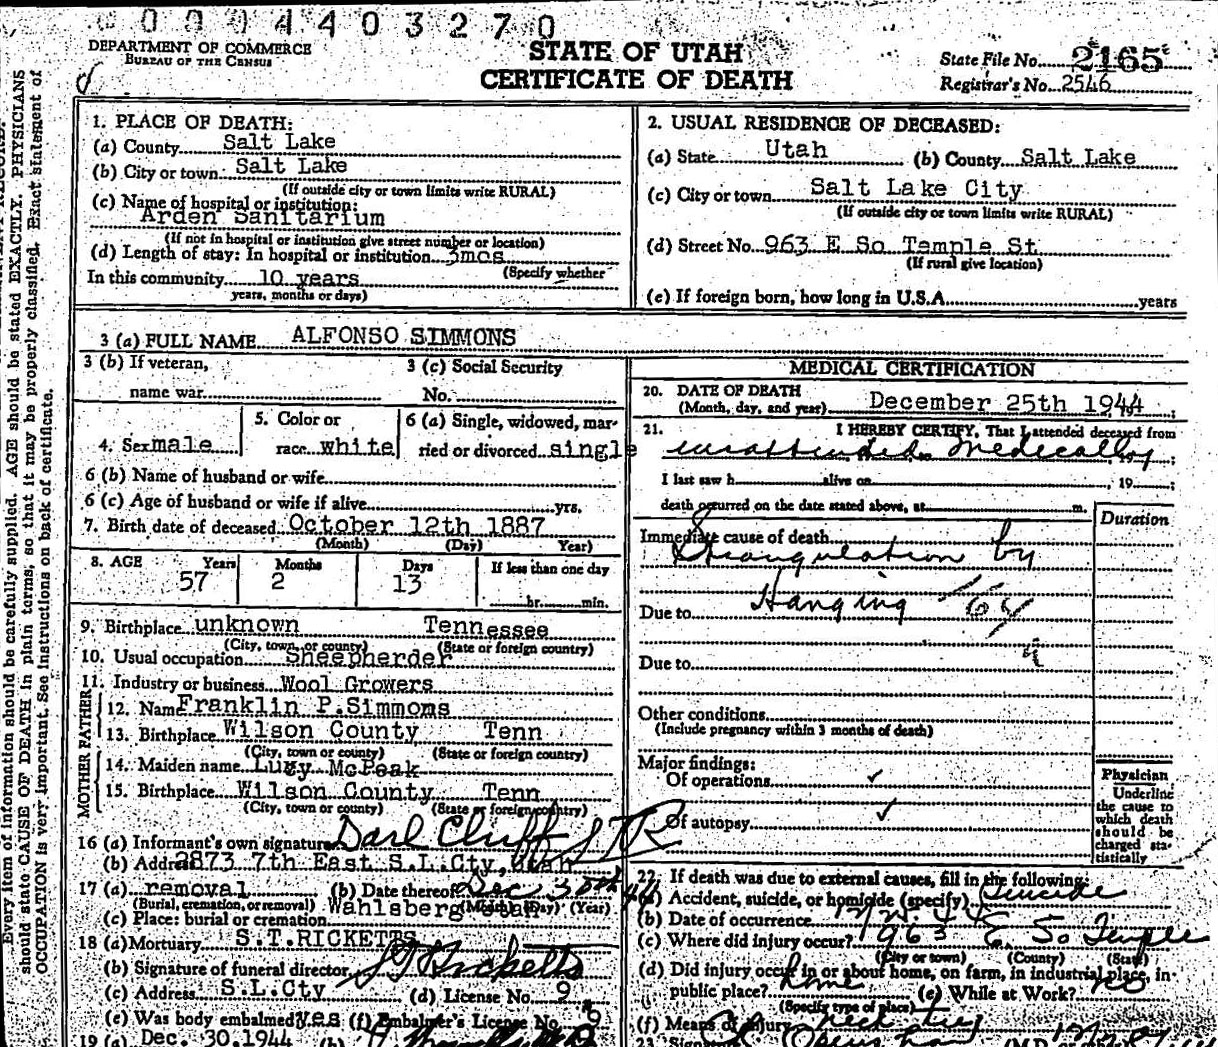 0004403270
DEPARTMENT OF COMMERCE
BUREAU OF THE CENSUS
STATE OF UTAH
CERTIFICATE OF DEATH
State File No. 2165
Registrar's No. 2546
Every item of information should be carefully supplied. AGE should be stated EXACTLY. PHYSICIANS
should state CAUSE OF DEATH in plain terms, so that it may be properly classified. Exact statement of
OCCUPATION is very important. See instructions on back of certificate.
1. PLACE OF DEATH:
(a) County Salt Lake
(b) City or town Salt Lake
(If outside city or town limits write RURAL)
(c) Name of hospital or institution:
Arden Sanitarium
(If not in hospital or institution give street number or location)
(d) Length of stay: In hospital or institution 3mos
(Specify whether
In this community 10 years
years, months or days)
2. USUAL RESIDENCE OF DECEASED:
(a) State Utah (b) County Salt Lake
(c) City or town Salt Lake City
(If outside city or town limits write RURAL)
(d) Street No. 963 E So Temple St
(If rural give location)
(e) If foreign born, how long in U.S.A. years
3 (a) FULL NAME ALFONSO SIMMONS
3 (b) If veteran,
name war
3 (c) Social Security
No.
4. Sex male
5. Color or
race white
6 (a) Single, widowed, mar-
ried or divorced single
6 (b) Name of husband or wife
6 (c) Age of husband or wife if alive yrs.
7. Birth date of deceased October 12th 1887
(Month) (Day) Year)
8. AGE Years Months Days If less than one day
57 2 13 hr. min.
9. Birthplace unknown Tennessee
(City, town, or county) (State or foreign country)
10. Usual occupation Sheepherder
11. Industry or business Wool Growers
FATHER
12. Name Franklin P.Simmons
13. Birthplace Wilson County Tenn
(City, town or county) (State or foreign country)
MOTHER
14. Maiden name Lucy McPeak
15. Birthplace Wilson County Tenn
(City, town or county) (State or foreign country)
16 (a) Informant's own signature Darl Cluff STR
(b) Address 2873 7th East S.L.Cty, Utah
17 (a) removal (b) Date thereof Dec 30th 44
(Burial, cremation, or removal) (Month) (Day) (Year)
(c) Place: burial or cremation Wahlsberg
18 (a) Mortuary S.T.RICKETTS
(b) Signature of funeral director S T Ricketts
(c) Address S.L.Cty (d) License No. 9
(e) Was body embalmed? yes (f) Embalmer's License No. 9
19 (a) Dec. 30.1944 (b)
MEDICAL CERTIFICATION
20. DATE OF DEATH
(Month, day, and year) December 25th 1944
21. I HEREBY CERTIFY, That I attended deceased from
unattended Medically
I last saw h alive on , 19 ;
death occurred on the date stated above, at m.
Duration
Immediate cause of death
Strangulation by
Hanging 164
Due to
Due to
Other conditions
(Include pregnancy within 3 months of death)
Major findings:
Of operations ✓
Of autopsy ✓
Physician
Underline
the cause to
which death
should be
charged sta-
tistically
22. If death was due to external causes, fill in the following:
(a) Accident, suicide, or homicide (specify) Suicide
(b) Date of occurrence
(c) Where did injury occur? 963 E. So Temple
(City or town) (County) (State)
(d) Did injury occur in or about home, on farm, in industrial place, in
public place? home (e) While at Work? no
(Specify type of place)
(f) Means of injury neck tie